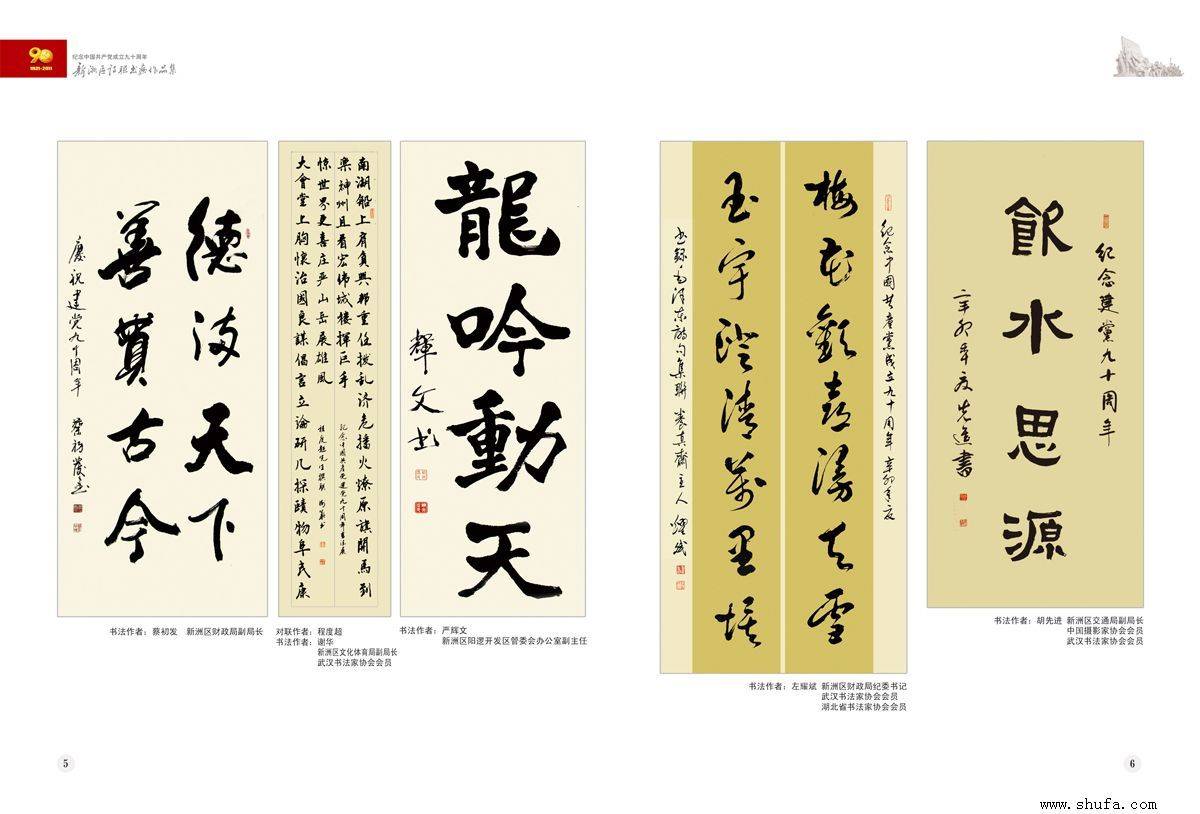 90
1921-2011
纪念中国共产党成立九十周年
新洲区诗联书画作品集
德满天下
善贯古今
慶祝建党九十周年 蔡初發书
书法作者：蔡初发 新洲区财政局副局长
南湖船上肩負興邦重任拨乱济危播火燎原旗開馬到
樂神州且看宏伟城楼揮巨手
惊世界更喜庄严山岳展雄風
大會堂上胸懷治國良謀倡言立論研几探赜物阜民康
纪念中國共產党建党九十周年書法展
程度超先生撰联 谢華书
对联作者：程度超
书法作者：谢华
新洲区文化体育局副局长
武汉书法家协会会员
龍吟動天
輝文书
书法作者：严辉文
新洲区阳逻开发区管委会办公室副主任
纪念中國共產黨成立九十周年 辛卯年夏
梅花歡喜漫天雪
玉宇澄清萬里埃
书録毛澤东詩句集聯 養真齋主人 耀斌
书法作者：左耀斌 新洲区财政局纪委书记
武汉书法家协会会员
湖北省书法家协会会员
纪念建黨九十周年
飲水思源
辛卯年夏先進書
书法作者：胡先进 新洲区交通局副局长
中国摄影家协会会员
武汉书法家协会会员
5
6
www.shufa.com